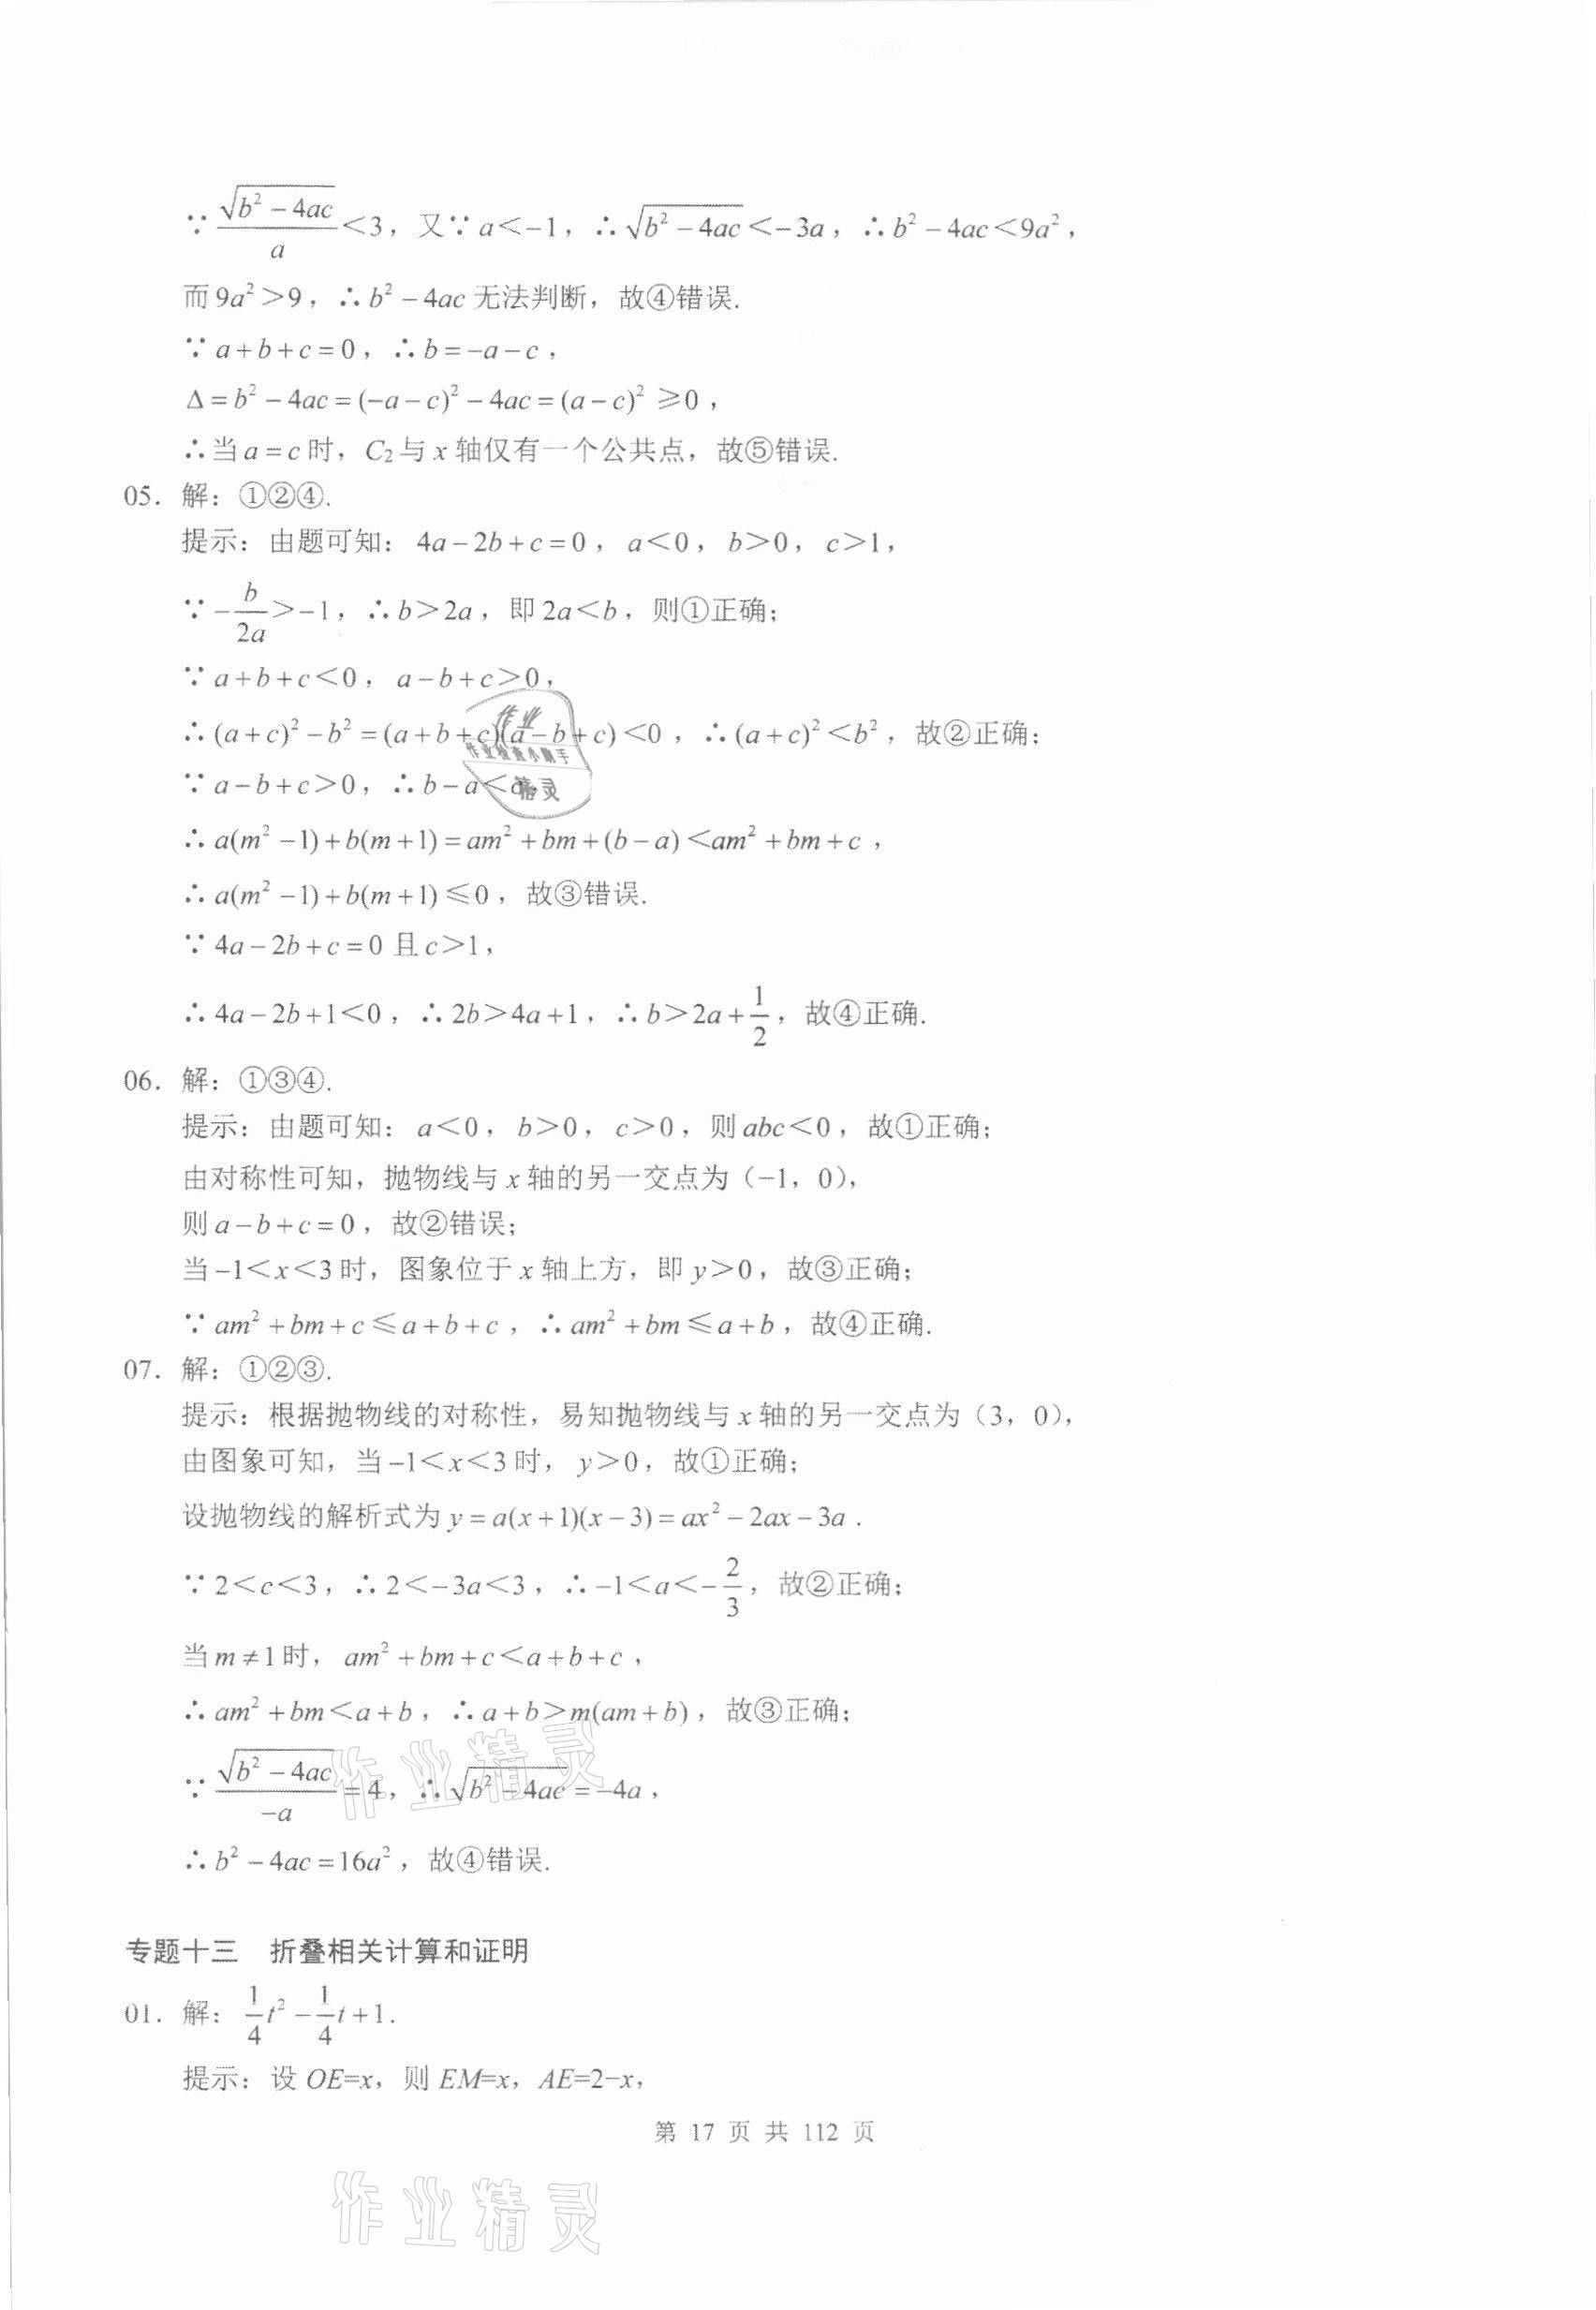 ∵ √(b² − 4ac) / a < 3，又∵ a < −1，∴ √(b² − 4ac) < −3a，∴ b² − 4ac < 9a²，
而 9a² > 9，∴ b² − 4ac 无法判断，故④错误.
∵ a + b + c = 0，∴ b = −a − c，
Δ = b² − 4ac = (−a − c)² − 4ac = (a − c)² ≥ 0，
∴当 a = c 时，C₂ 与 x 轴仅有一个公共点，故⑤错误.
05. 解：①②④.
提示：由题可知：4a − 2b + c = 0，a < 0，b > 0，c > 1，
∵ − b/2a > −1，∴ b > 2a，即 2a < b，则①正确；
∵ a + b + c < 0，a − b + c > 0，
∴ (a + c)² − b² = (a + b + c)(a − b + c) < 0，∴ (a + c)² < b²，故②正确；
∵ a − b + c > 0，∴ b − a < c，
∴ a(m² − 1) + b(m + 1) = am² + bm + (b − a) < am² + bm + c，
∴ a(m² − 1) + b(m + 1) ≤ 0，故③错误.
∵ 4a − 2b + c = 0 且 c > 1，
∴ 4a − 2b + 1 < 0，∴ 2b > 4a + 1，∴ b > 2a + 1/2，故④正确.
06. 解：①③④.
提示：由题可知：a < 0，b > 0，c > 0，则 abc < 0，故①正确；
由对称性可知，抛物线与 x 轴的另一交点为（−1，0），
则 a − b + c = 0，故②错误；
当 −1 < x < 3 时，图象位于 x 轴上方，即 y > 0，故③正确；
∵ am² + bm + c ≤ a + b + c，∴ am² + bm ≤ a + b，故④正确.
07. 解：①②③.
提示：根据抛物线的对称性，易知抛物线与 x 轴的另一交点为（3，0），
由图象可知，当 −1 < x < 3 时，y > 0，故①正确；
设抛物线的解析式为 y = a(x + 1)(x − 3) = ax² − 2ax − 3a．
∵ 2 < c < 3，∴ 2 < −3a < 3，∴ −1 < a < − 2/3，故②正确；
当 m ≠ 1 时，am² + bm + c < a + b + c，
∴ am² + bm < a + b，∴ a + b > m(am + b)，故③正确；
∵ √(b² − 4ac) / −a = 4，∴ √(b² − 4ac) = −4a，
∴ b² − 4ac = 16a²，故④错误.
专题十三 折叠相关计算和证明
01. 解：1/4 t² − 1/4 t + 1．
提示：设 OE=x，则 EM=x，AE=2−x，
第 17 页 共 112 页
作业
作业检查小助手
精灵
作业精灵
作业精灵